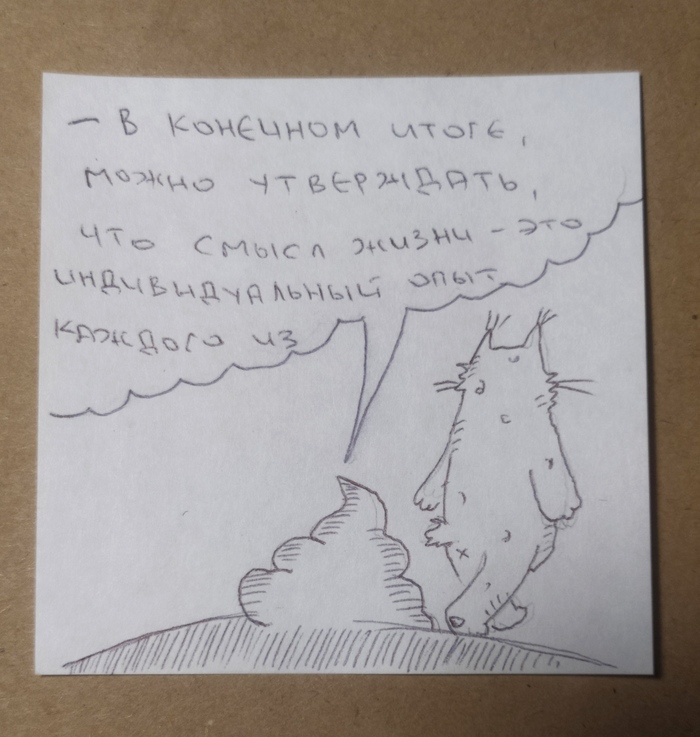 — В КОНЕЧНОМ ИТОГЕ,
МОЖНО УТВЕРЖДАТЬ,
ЧТО СМЫСЛ ЖИЗНИ - ЭТО
ИНДИВИДУАЛЬНЫЙ ОПЫТ
КАЖДОГО ИЗ